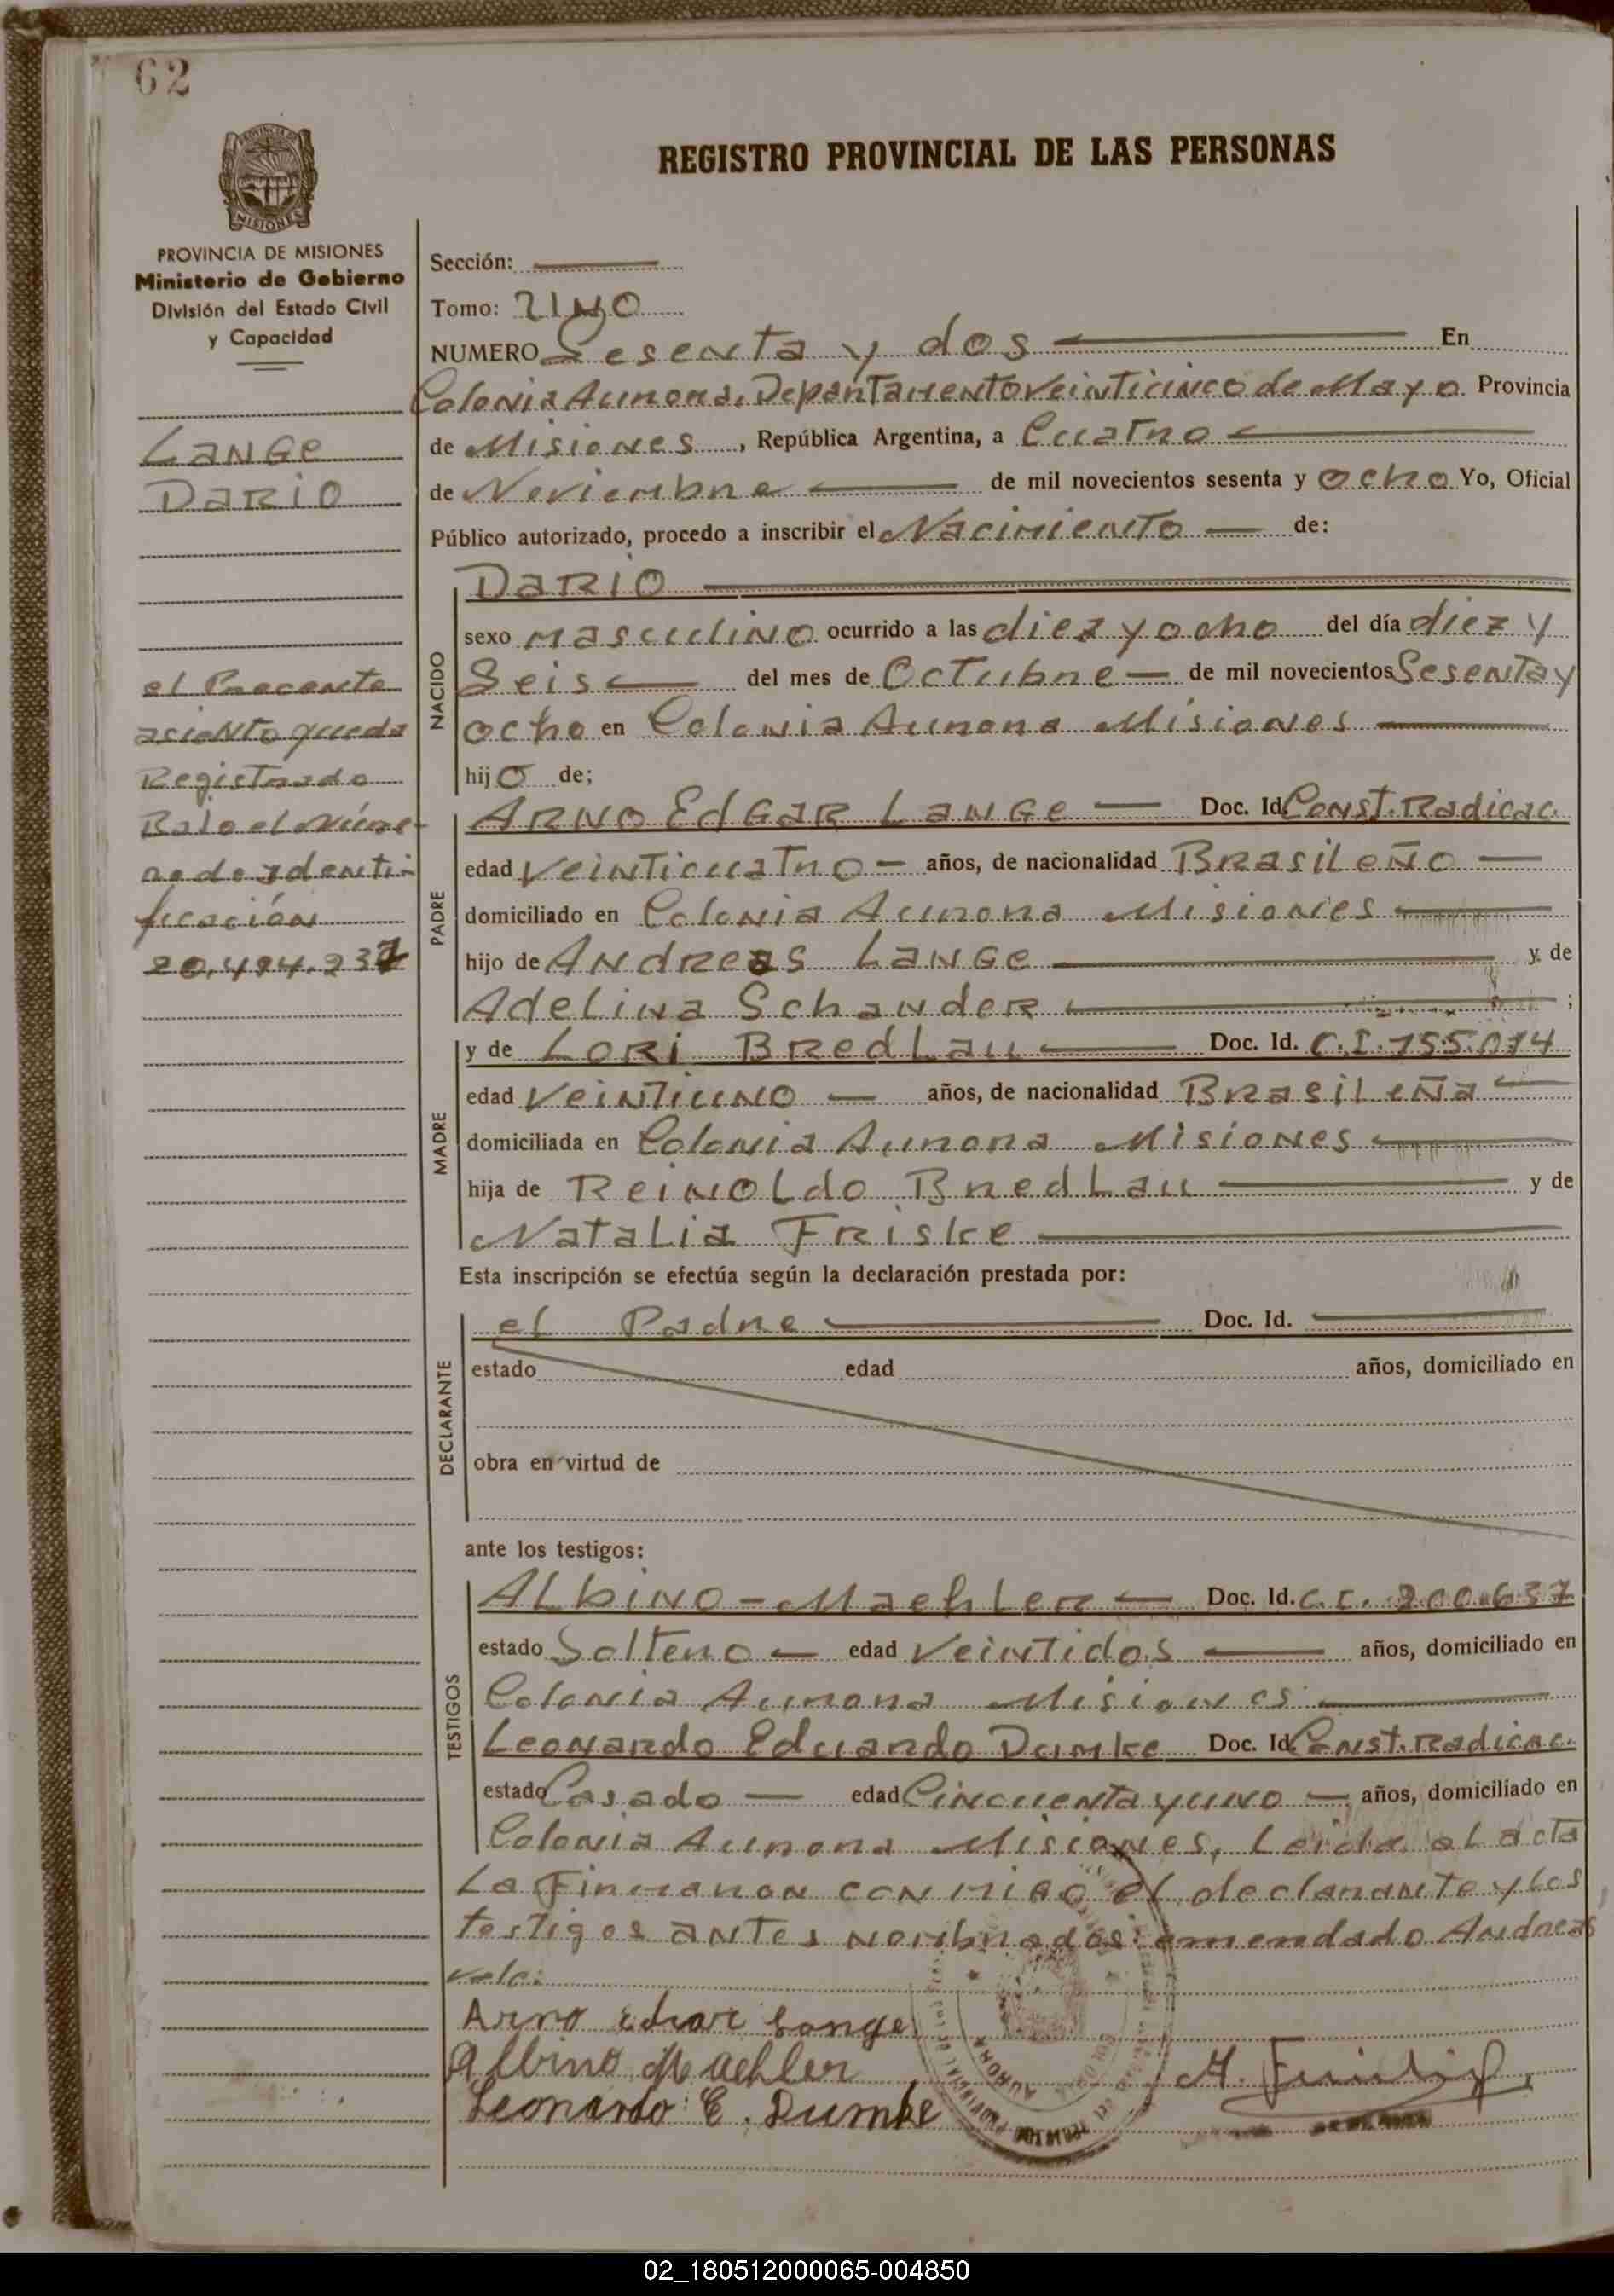 62
PROVINCIA DE MISIONES
Ministerio de Gobierno
División del Estado Civil
y Capacidad
REGISTRO PROVINCIAL DE LAS PERSONAS
Sección:
Tomo: UNO
NUMERO Sesenta y dos En
Colonia Aurora, Departamento Veinticinco de Mayo Provincia
de Misiones, República Argentina, a Cuatro
de Noviembre de mil novecientos sesenta y ocho Yo, Oficial
Público autorizado, procedo a inscribir el Nacimiento de:
LANGE
DARIO
el Presente
asiento queda
Registrado
Bajo el Núme-
ro de ydenti-
ficación
20.494.237
NACIDO
DARIO
sexo masculino ocurrido a las diez y ocho del día diez y
Seis del mes de Octubre de mil novecientos Sesenta y
ocho en Colonia Aurora Misiones
hijo de;
PADRE
ARNO EdGAR LANGe Doc. Id. Const. Radicac.
edad Veinticuatro años, de nacionalidad BRasiLeÑo
domiciliado en Colonia Aurora Misiones
hijo de ANdReas LANGe y de
AdeLina SchandeR ;
MADRE
y de LORi BRedLau Doc. Id. C.I. 155.014
edad Veintiuno años, de nacionalidad BRasiLeÑa
domiciliada en Colonia Aurora Misiones
hija de ReinoLdo BredLau y de
NataLia FRiske
Esta inscripción se efectúa según la declaración prestada por:
DECLARANTE
el Padre Doc. Id.
estado edad años, domiciliado en
obra en virtud de
ante los testigos:
TESTIGOS
ALbino Maehler Doc. Id. C.C. 200.637
estado Soltero edad Veintidos años, domiciliado en
Colonia Aurora Misiones
Leonardo Eduardo Dumke Doc. Id. Const. Radicac.
estado Casado edad Cincuenta y uno años, domiciliado en
Colonia Aurora Misiones, Leida el acta
La Firmaron conmigo el declarante y los
testigos antes nombrados: emendado Andreas
vale:
Arno Edgar Lange
Albino Maehler
Leonardo E. Dumke
02_180512000065-004850